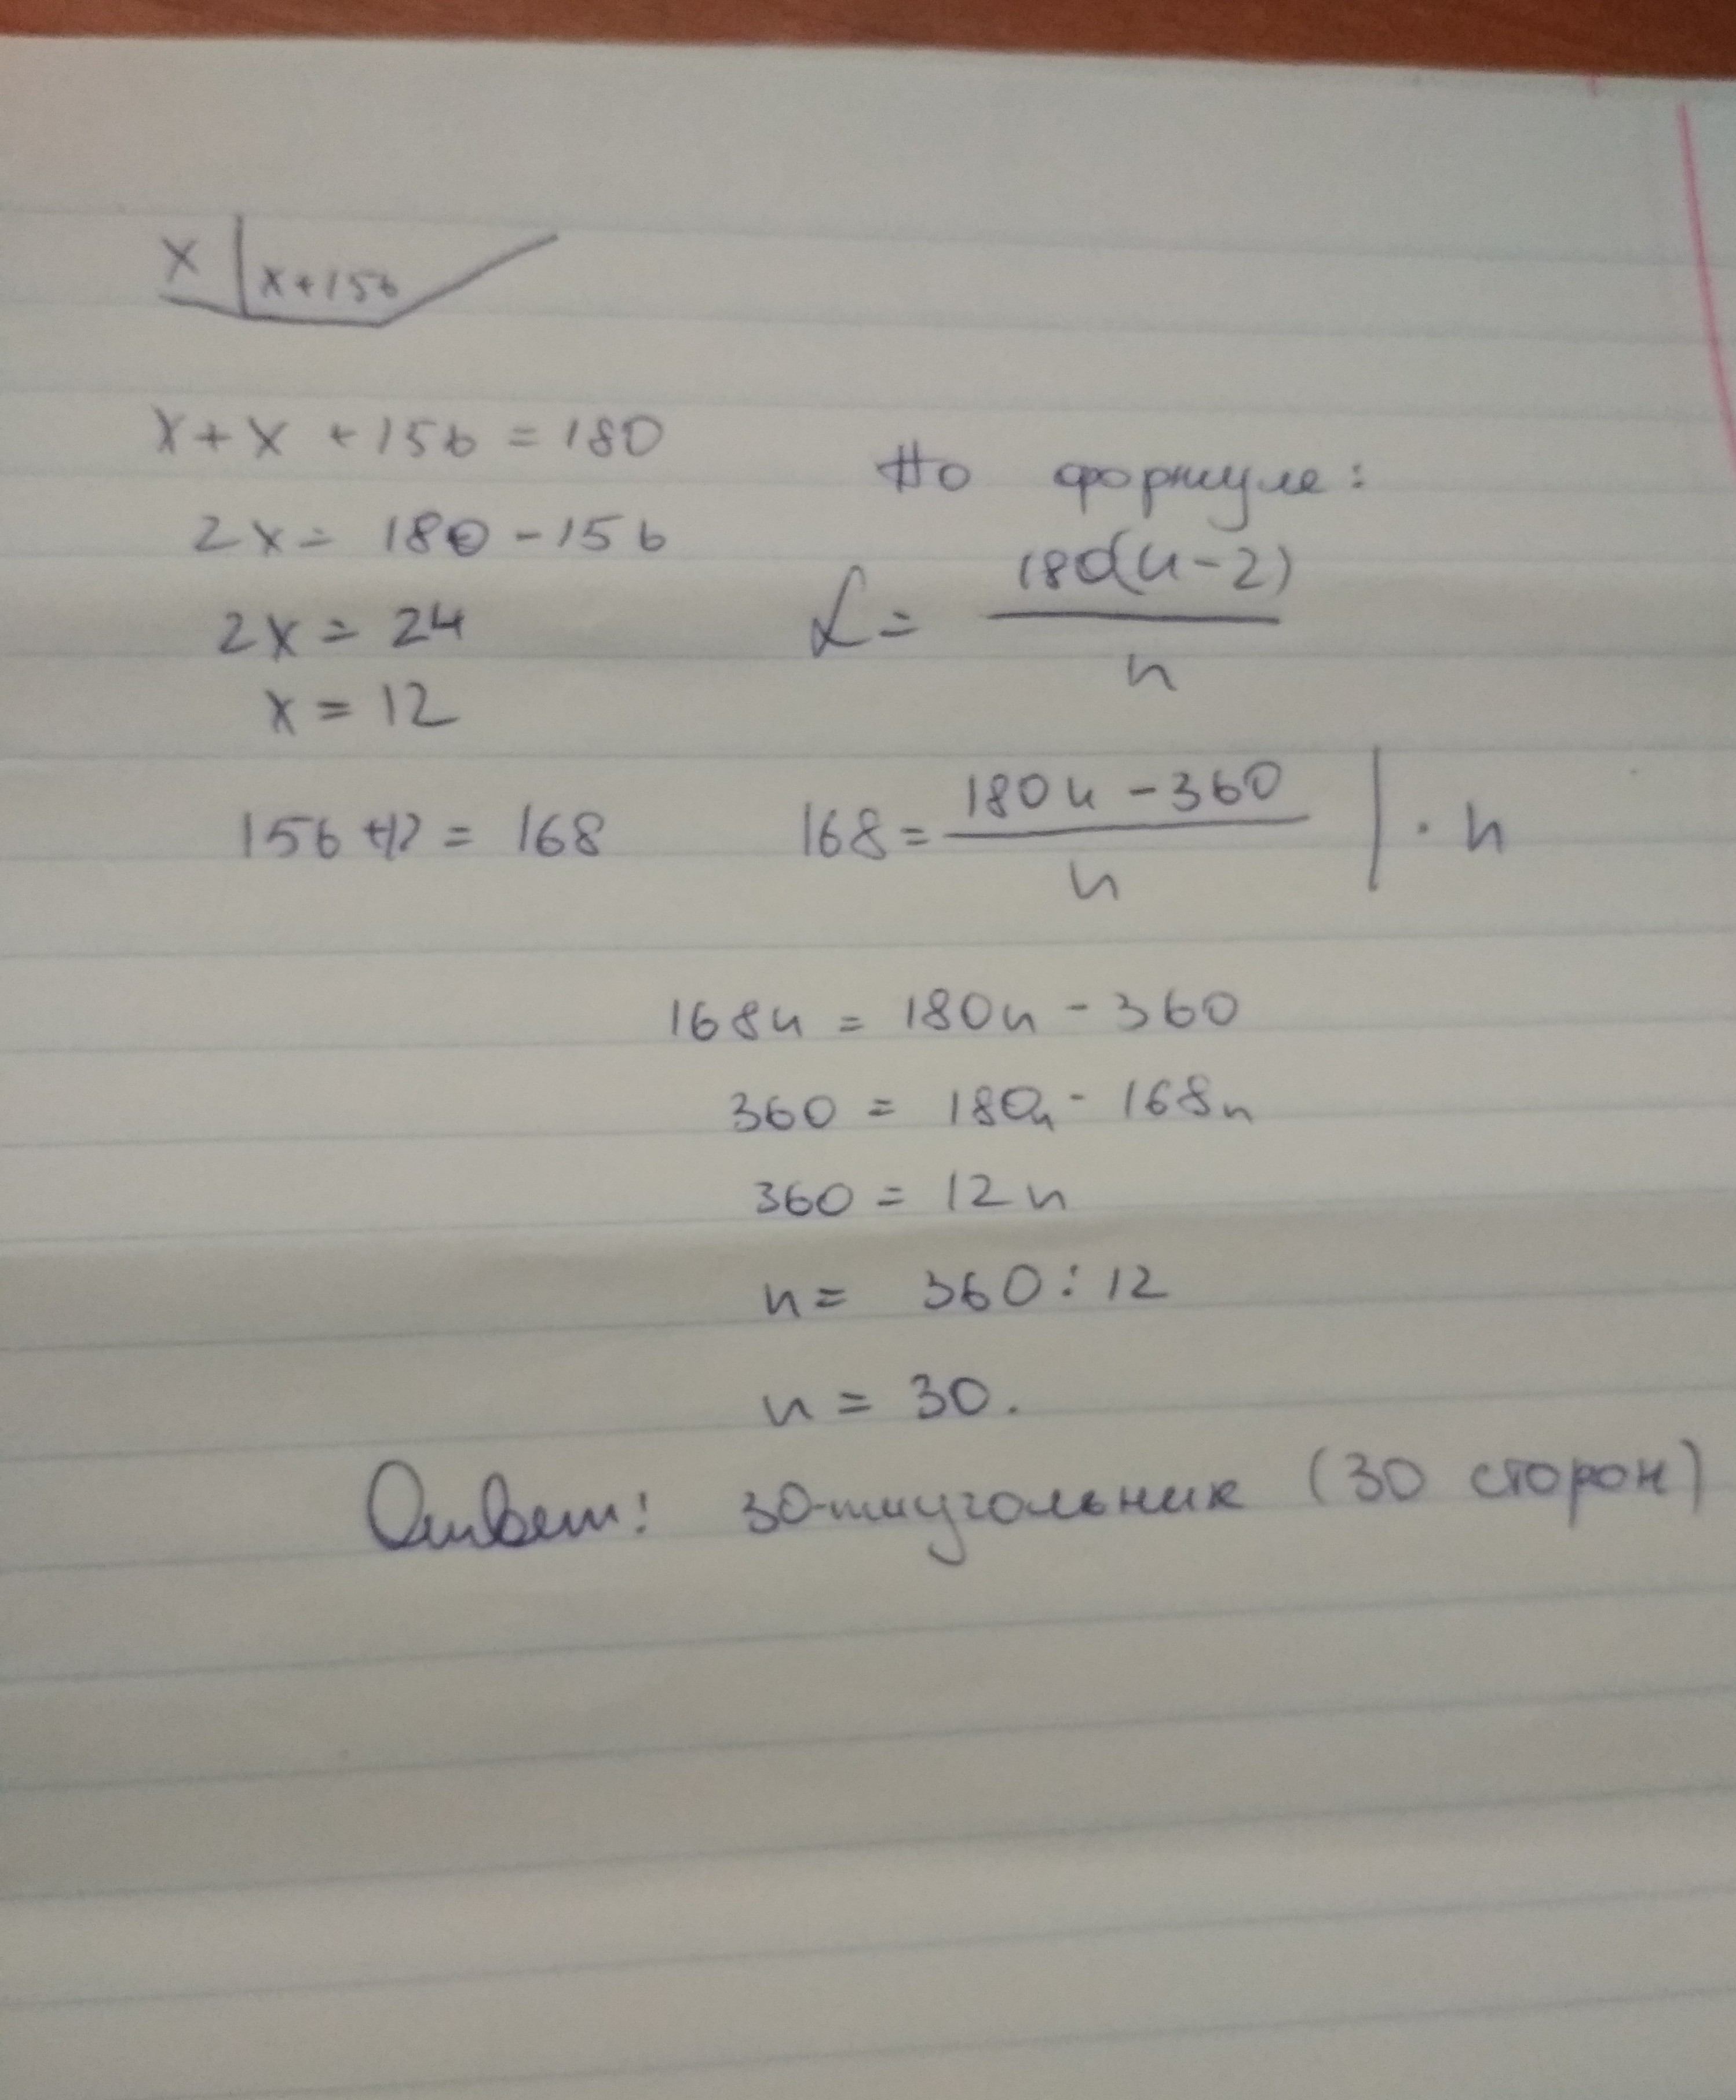 x x+156
x+x+156=180
2x=180-156
2x=24
x=12
156+12=168
По формуле:
α=180(n-2)/n
168=180n-360/n |·n
168n=180n-360
360=180n-168n
360=12n
n=360:12
n=30.
Ответ: 30-тиугольник (30 сторон)